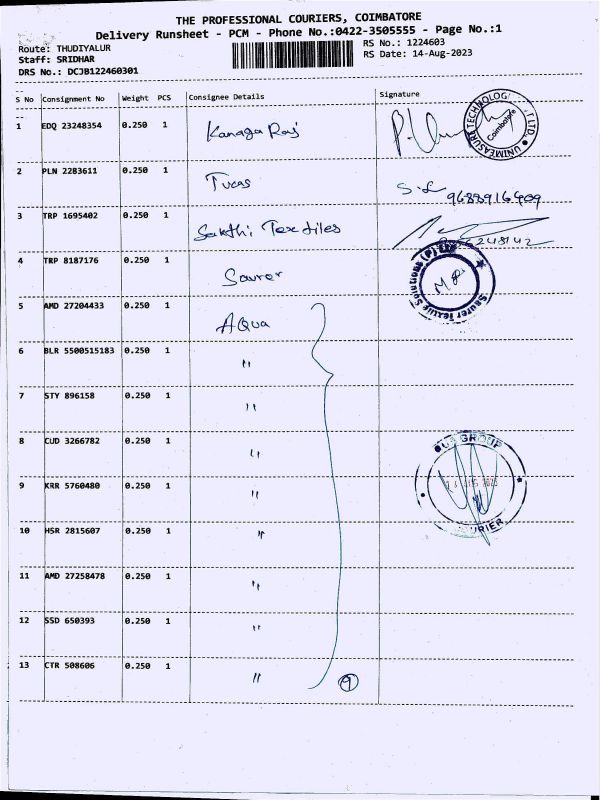 THE PROFESSIONAL COURIERS, COIMBATORE
Delivery Runsheet - PCM - Phone No.:0422-3505555 - Page No.:1
Route: THUDIYALUR
RS No.: 1224603
Staff: SRIDHAR
RS Date: 14-Aug-2023
DRS No.: DCJB122460301
S No Consignment No Weight PCS Consignee Details Signature
1 EDQ 23248354 0.250 1 Kanaga Raj
UNIMEASURE TECHNOLOGI PVT LTD.
Coimbatore
2 PLN 2283611 0.250 1 Tucas S.L
9688916409
3 TRP 1695402 0.250 1 Sakthi Textiles
4 TRP 8187176 0.250 1 Saurer
Saurer Textile Solutions (P) Ltd
5 AMD 27204433 0.250 1 AQua
6 BLR 5500515183 0.250 1 "
7 STY 896158 0.250 1 "
8 CUD 3266782 0.250 1 "
GROUP
9 KRR 5760480 0.250 1 "
COURIER
10 HSR 2815607 0.250 1 "
11 AMD 27258478 0.250 1 "
12 SSD 650393 0.250 1 "
13 CTR 508606 0.250 1 "
9